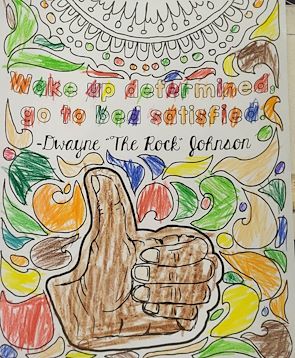 Wake up determined,
go to bed satisfied.
-Dwayne "The Rock" Johnson